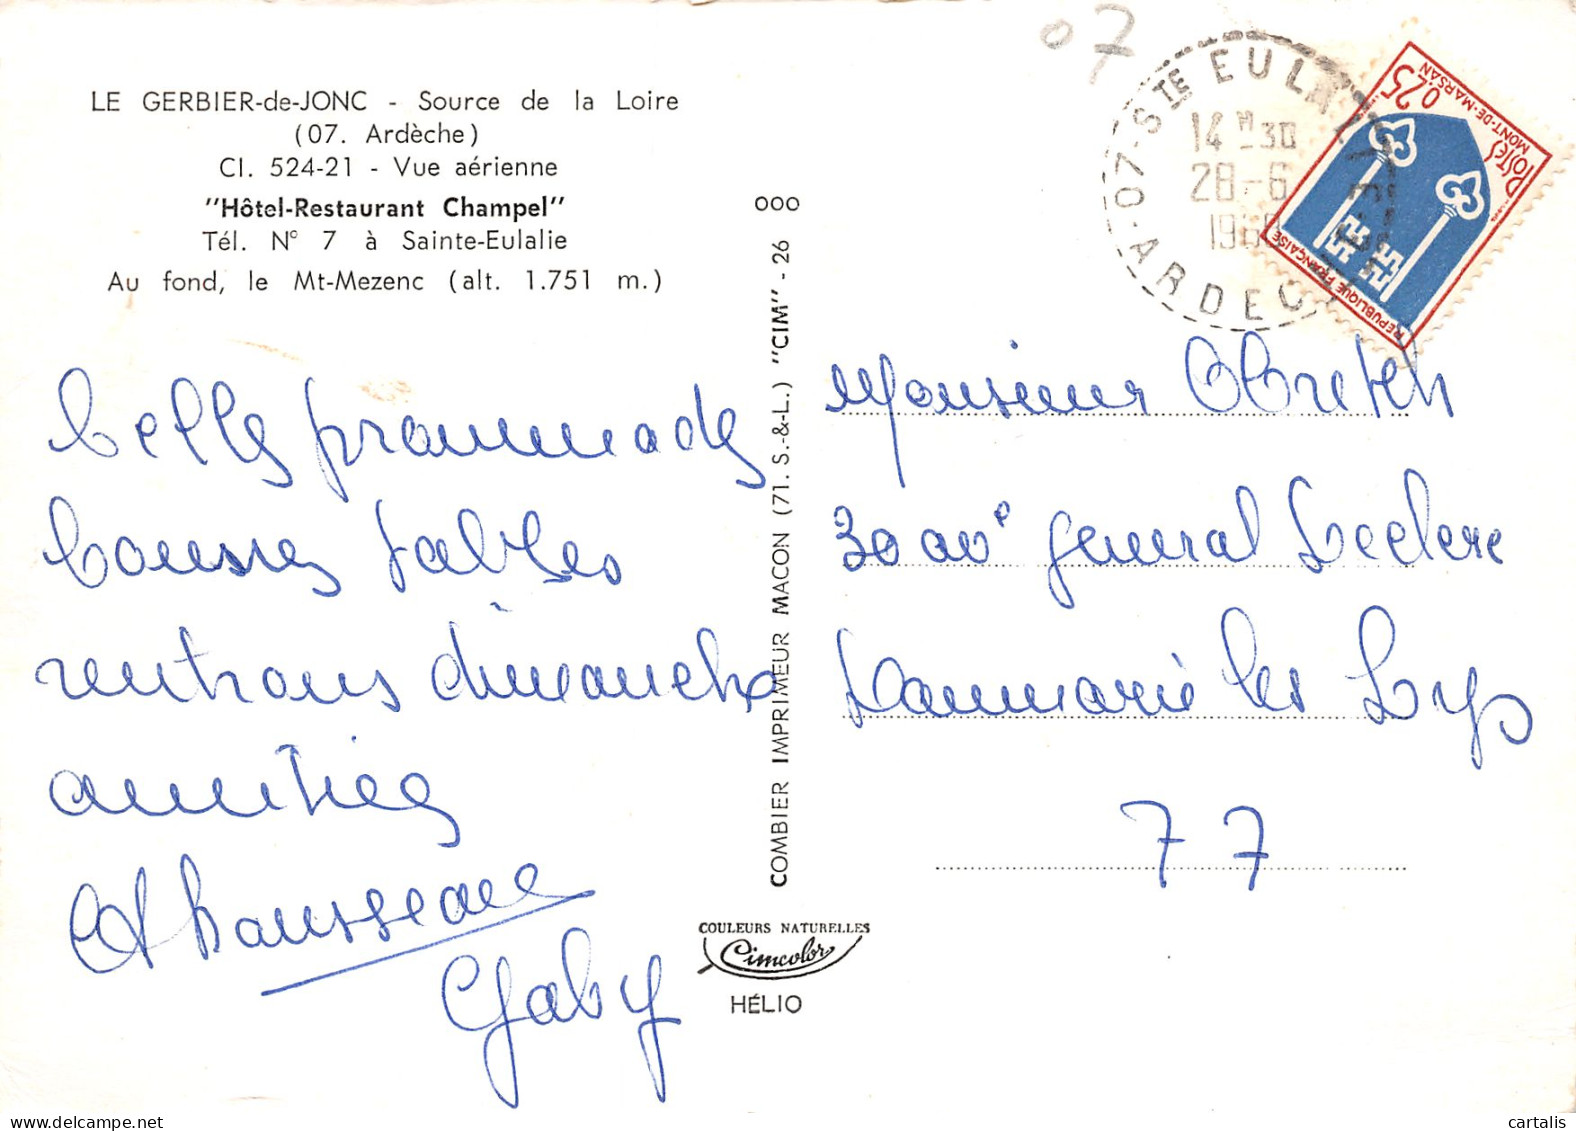 LE GERBIER-de-JONC - Source de la Loire
(07. Ardèche)
Cl. 524-21 - Vue aérienne
"Hôtel-Restaurant Champel"
Tél. N° 7 à Sainte-Eulalie
Au fond, le Mt-Mezenc (alt. 1.751 m.)
belle promenade
bonnes tables
rentrons dimanche
amitiés
Gaby
COMBIER IMPRIMEUR MACON (71. S.-&-L.) "CIM" - 26
000
COULEURS NATURELLES
Cimcolor
HÉLIO
07
07-STE EULALIE
14 H 30
28-6
196
ARDECHE
0,25
POSTES
MONT-DE-MARSAN
REPUBLIQUE FRANÇAISE
Monsieur
30 ave general Leclerc
Dammarie les Lys
77
cartalis
delcampe.net